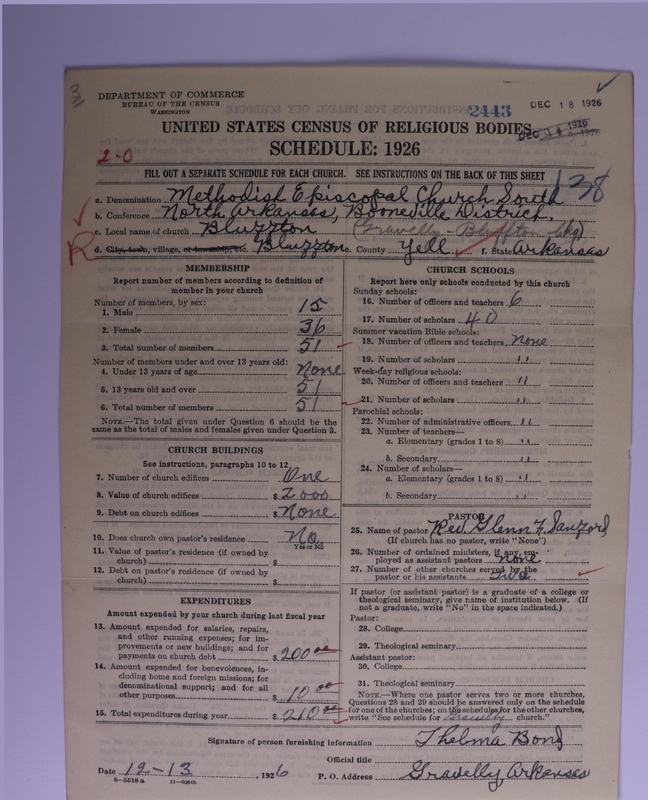 3
DEPARTMENT OF COMMERCE
BUREAU OF THE CENSUS
WASHINGTON
2443
DEC 18 1926
UNITED STATES CENSUS OF RELIGIOUS BODIES
SCHEDULE: 1926
2-0
FILL OUT A SEPARATE SCHEDULE FOR EACH CHURCH. SEE INSTRUCTIONS ON THE BACK OF THIS SHEET
138
a. Denomination Methodist Episcopal Church South
b. Conference North Arkansas, Booneville District.
c. Local name of church Bluffton (Gravelly - Bluffton Chg)
R d. City, town, village, or township, etc. Bluffton e. County Yell f. State Arkansas
MEMBERSHIP
Report number of members according to definition of
member in your church
Number of members, by sex:
1. Male 15
2. Female 36
3. Total number of members 51
Number of members under and over 13 years old:
4. Under 13 years of age None
5. 13 years old and over 51
6. Total number of members 51
NOTE.—The total given under Question 6 should be the
same as the total of males and females given under Question 3.
CHURCH BUILDINGS
See instructions, paragraphs 10 to 12
7. Number of church edifices One
8. Value of church edifices $2000
9. Debt on church edifices $None
10. Does church own pastor's residence? No
Yes or No
11. Value of pastor's residence (if owned by
church) $
12. Debt on pastor's residence (if owned by
church) $
EXPENDITURES
Amount expended by church during last fiscal year
13. Amount expended for salaries, repairs,
and other running expenses; for im-
provements or new buildings; and for
payments on church debt $200 00
14. Amount expended for benevolences, in-
cluding home and foreign missions; for
denominational support; and for all
other purposes $10 00
15. Total expenditures during year $210 00
CHURCH SCHOOLS
Report here only schools conducted by this church
Sunday schools:
16. Number of officers and teachers 6
17. Number of scholars 40
Summer vacation Bible schools:
18. Number of officers and teachers None
19. Number of scholars "
Week-day religious schools:
20. Number of officers and teachers "
21. Number of scholars "
Parochial schools:
22. Number of administrative officers "
23. Number of teachers—
a. Elementary (grades 1 to 8) "
b. Secondary "
24. Number of scholars—
a. Elementary (grades 1 to 8) "
b. Secondary "
PASTOR
25. Name of pastor Rev. Glenn F. Sanford
(If church has no pastor, write "None")
26. Number of ordained ministers, if any, em-
ployed as assistant pastors None
27. Number of other churches served by the
pastor or his assistants Two
If pastor (or assistant pastor) is a graduate of a college or
theological seminary, give name of institution below. (If
not a graduate, write "No" in the space indicated.)
Pastor:
28. College
29. Theological seminary
Assistant pastor:
30. College
31. Theological seminary
NOTE.—Where one pastor serves two or more churches,
Questions 28 and 29 should be answered only on the schedule
for one of the churches; on the schedules for the other churches,
write "See schedule for Gravelly church."
Signature of person furnishing information Thelma Bond
Official title
Date 12-13, 1926
P. O. Address Gravelly Arkansas